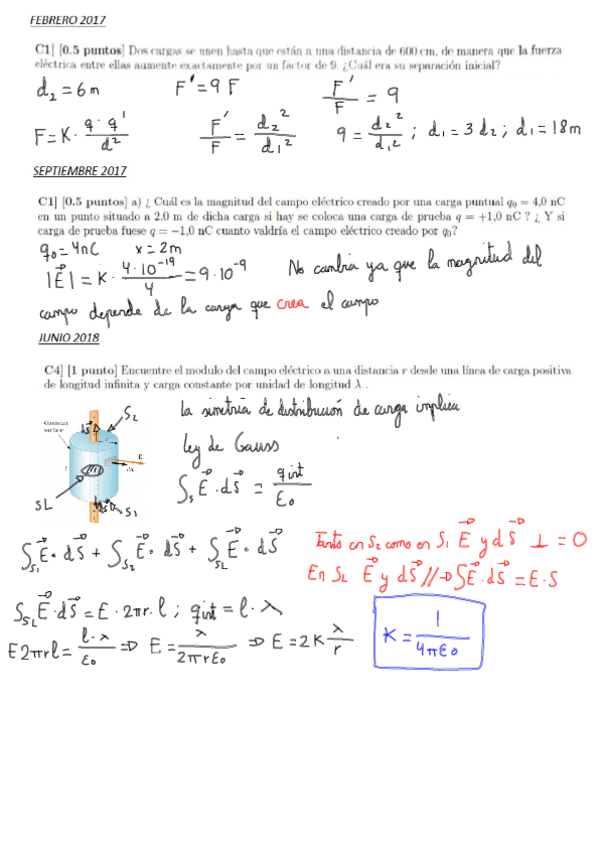 FEBRERO 2017
C1] [0.5 puntos] Dos cargas se unen hasta que están a una distancia de 600 cm, de manera que la fuerza
eléctrica entre ellas aumente exactamente por un factor de 9. ¿Cuál era su separación inicial?
d₂ = 6 m F' = 9 F F'/F = 9
F = K · q · q'/d² F'/F = d₂²/d₁² 9 = d₂²/d₁² ; d₁ = 3 d₂ ; d₁ = 18 m
SEPTIEMBRE 2017
C1] [0.5 puntos] a) ¿ Cuál es la magnitud del campo eléctrico creado por una carga puntual q₀ = 4,0 nC
en un punto situado a 2.0 m de dicha carga si hay se coloca una carga de prueba q = +1,0 nC ? ¿ Y si
carga de prueba fuese q = −1,0 nC cuanto valdría el campo eléctrico creado por q₀?
q₀ = 4nC x = 2m
|E⃗| = K · 4·10⁻¹⁹/4 = 9·10⁻⁹ No cambia ya que la magnitud del
campo depende de la carga que crea el campo
JUNIO 2018
C4] [1 punto] Encuentre el modulo del campo eléctrico a una distancia r desde una línea de carga positiva
de longitud infinita y carga constante por unidad de longitud λ .
la simetría de distribución de carga implica
S₂
Gaussian
surface
ley de Gauss
E
dA
∫ₛ E⃗ · dS⃗ = qint/ε₀
SL
S₁
∫S₁ E⃗ · dS⃗ + ∫S₂ E⃗ · dS⃗ + ∫SL E⃗ · dS⃗
Tanto en S₂ como en S₁ E⃗ y dS⃗ ⊥ = 0
En SL E⃗ y dS⃗ // → ∫E⃗ · dS⃗ = E · S
∫SL E⃗ · dS⃗ = E · 2πr · l ; qint = l · λ
E2πrl = l·λ/ε₀ ⇒ E = λ/2πrε₀ ⇒ E = 2K λ/r K = 1/4πε₀